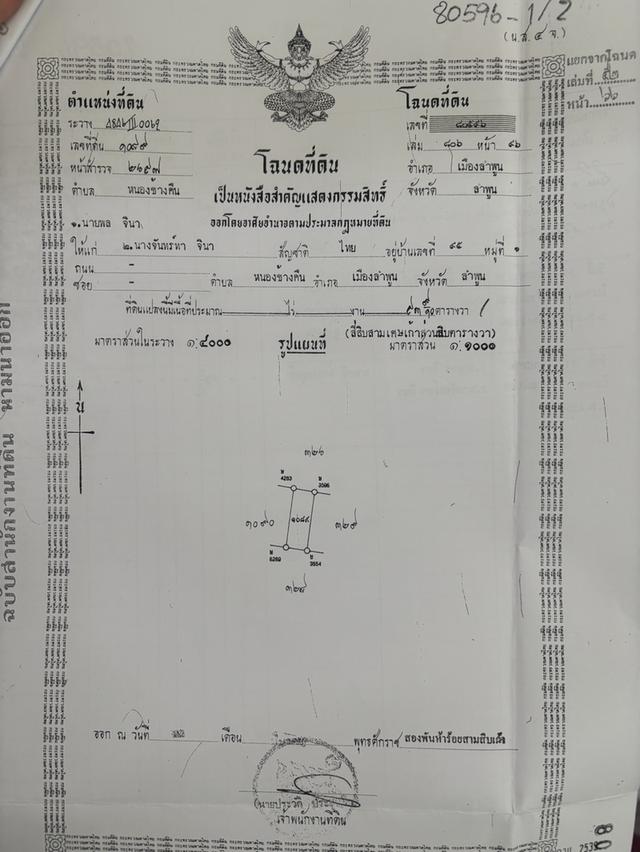 80596-1/2
(น.ส. ๔ จ.)
แยกจากโฉนด
เล่มที่
หน้า
ตำแหน่งที่ดิน
โฉนดที่ดิน
ระวาง
เลขที่ ๘๐๕๙๖
เลขที่ดิน ๑๐๘๙
เล่ม ๘๐๖ หน้า ๙๖
หน้าสำรวจ ๒๖๙๗
อำเภอ เมืองลำพูน
ตำบล หนองช้างคืน
จังหวัด ลำพูน
โฉนดที่ดิน
เป็นหนังสือสำคัญแสดงกรรมสิทธิ์
ออกโดยอาศัยอำนาจตามประมวลกฎหมายที่ดิน
๑.นายพล จินา
ให้แก่ ๒.นางจันทร์ทา จินา สัญชาติ ไทย อยู่บ้านเลขที่ ๔๕ หมู่ที่ ๑
ถนน -
ซอย - ตำบล หนองช้างคืน อำเภอ เมืองลำพูน จังหวัด ลำพูน
ที่ดินแปลงนี้มีเนื้อที่ประมาณ ไร่ งาน ตารางวา
(สี่สิบสามเศษเก้าส่วนสิบตารางวา)
มาตราส่วนในระวาง ๑:๔๐๐๐ รูปแผนที่ มาตราส่วน ๑:๑๐๐๐
น
๓๒๖
4283 3596
๑๐๙๐ ๑๐๘๙ ๓๒๙
6269 3554
๓๒๘
ออก ณ วันที่ เดือน พุทธศักราช สองพันห้าร้อยสามสิบเก้า
(นายประวัติ
เจ้าพนักงานที่ดิน
ฉบับสำนักงานที่ดิน ห้ามนำออก